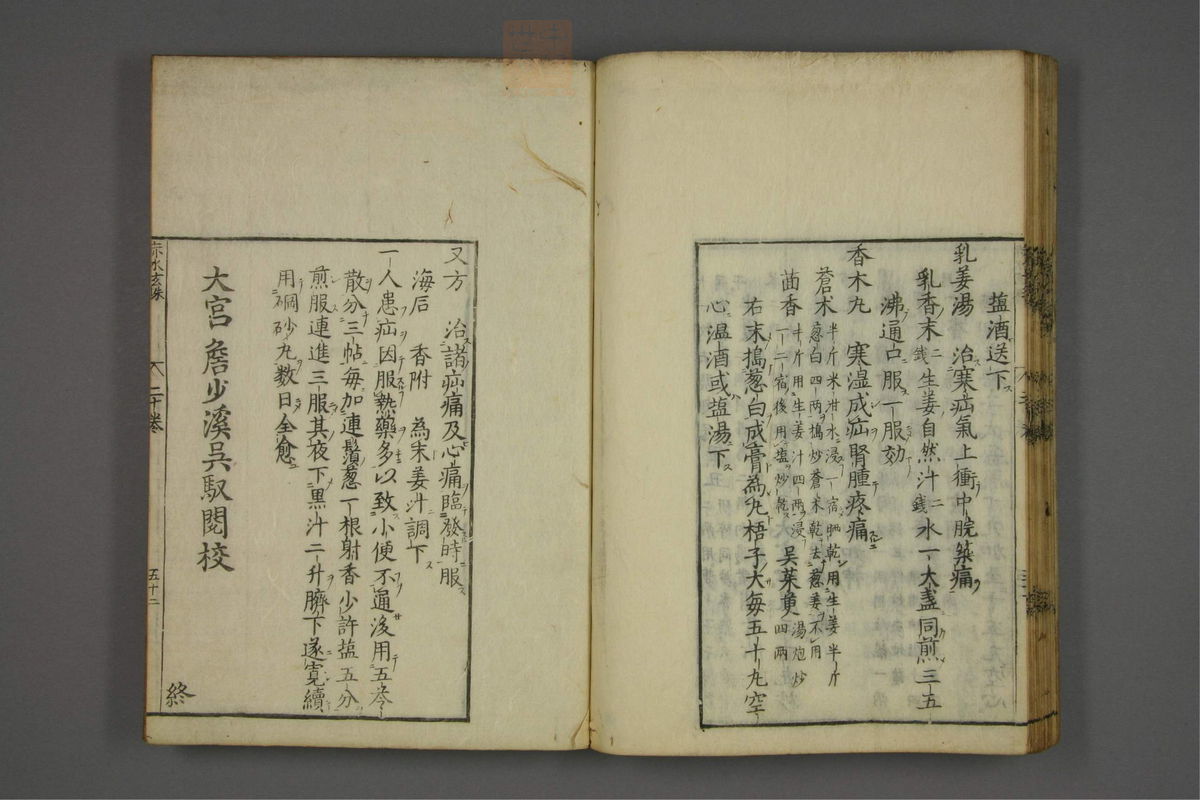 塩酒送下
乳姜湯　治寒疝氣上衝中脘築痛
乳香末二錢生姜自然汁二錢水一大盞同煎三五
沸通口服一服効
香木丸　寒湿成疝腎腫疼痛
蒼术半斤米泔水浸一宿晒乾用生姜半斤
葱白四两搗炒蒼术乾去葱姜不用
茴香半斤用生姜汁四两浸
一二宿後用塩炒乾
吴茱萸四两湯炮炒
右末搗葱白成膏為丸梧子大每五十丸空
心温酒或塩湯下
又方　治諸疝痛及心痛臨發時服
海石　香附　為末姜汁調下
一人患疝因服熱藥多以致小便不通後用五苓
散分三帖每加連鬚葱一根射香少許塩五分
煎服連進三服其夜下黒汁二升臍下遂寛續
用硇砂丸数日全愈
大宫詹少溪吴馭閲校
終
赤水玄珠　二十卷　五十二